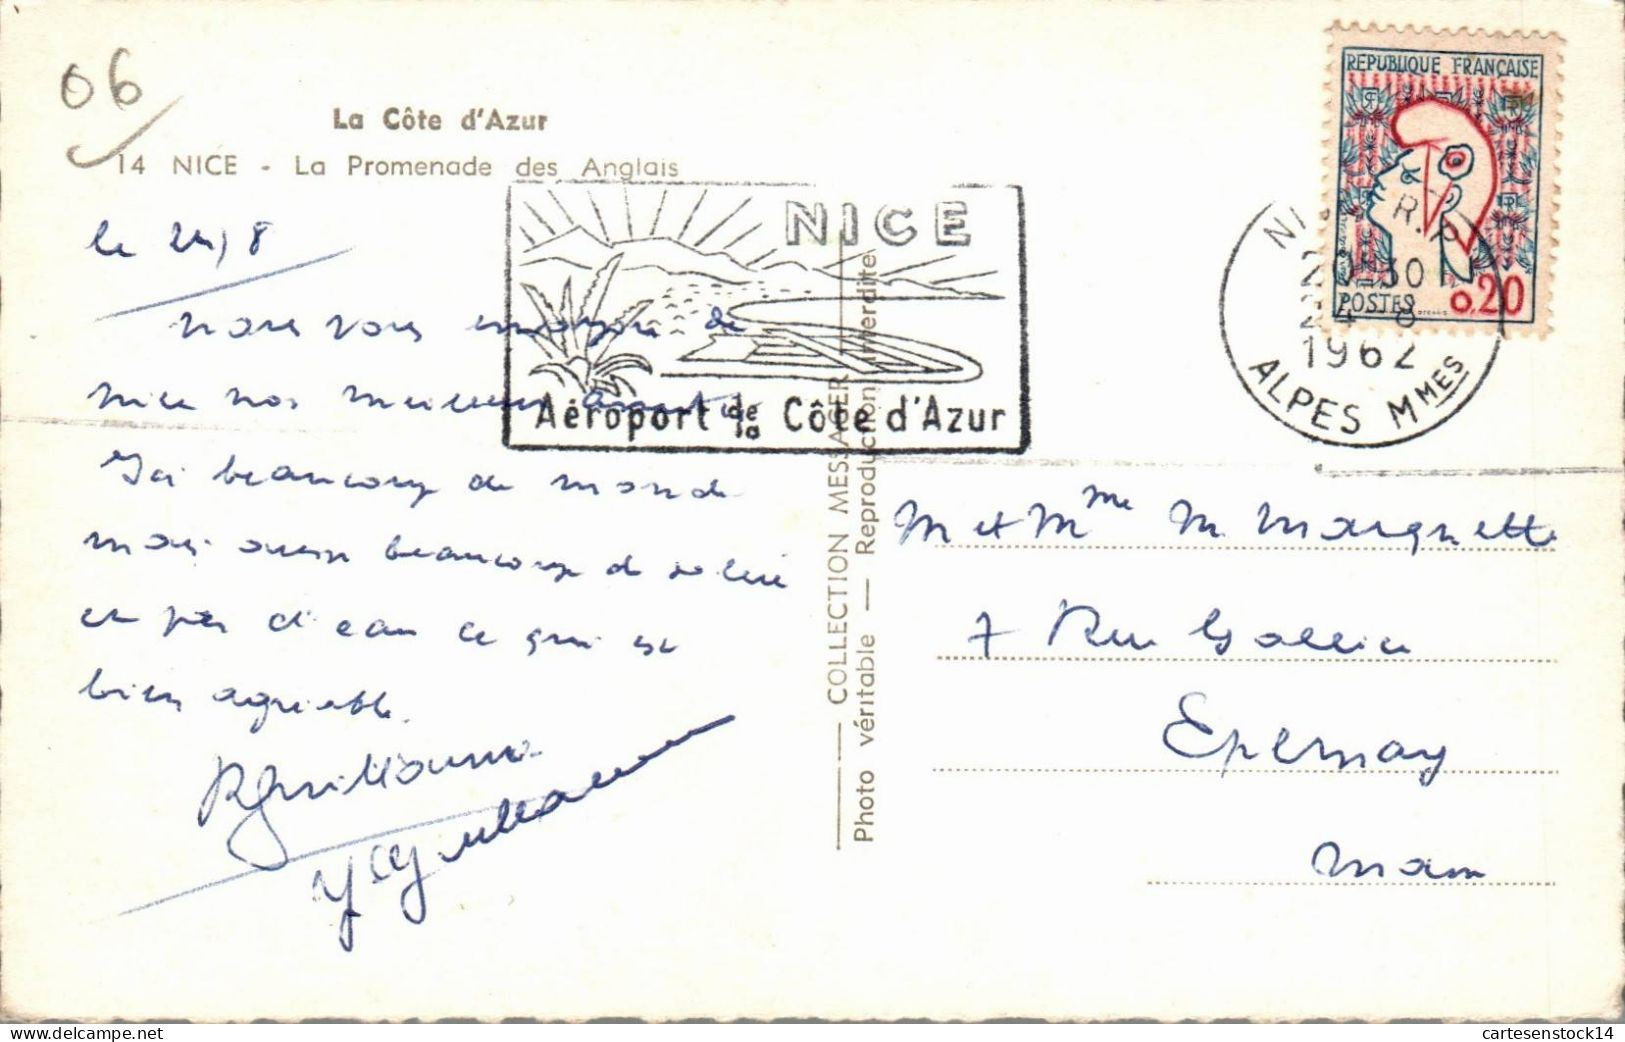 06
La Côte d'Azur
14 NICE - La Promenade des Anglais
le 24/8
nous vous envoyons de
nice nos meilleurs
Ici beaucoup de monde
mais aussi beaucoup de soleil
et pas d'eau ce qui est
bien agréable.
NICE
Aéroport de la Côte d'Azur
COLLECTION MESSAGER
Photo véritable — Reproduction interdite
REPUBLIQUE FRANÇAISE
POSTES 0,20
R.P
24 - 8
1962
ALPES MMES
M et Mme M. Marquette
7 Rue Gallice
Epernay
Marne
delcampe.net
cartesenstock14